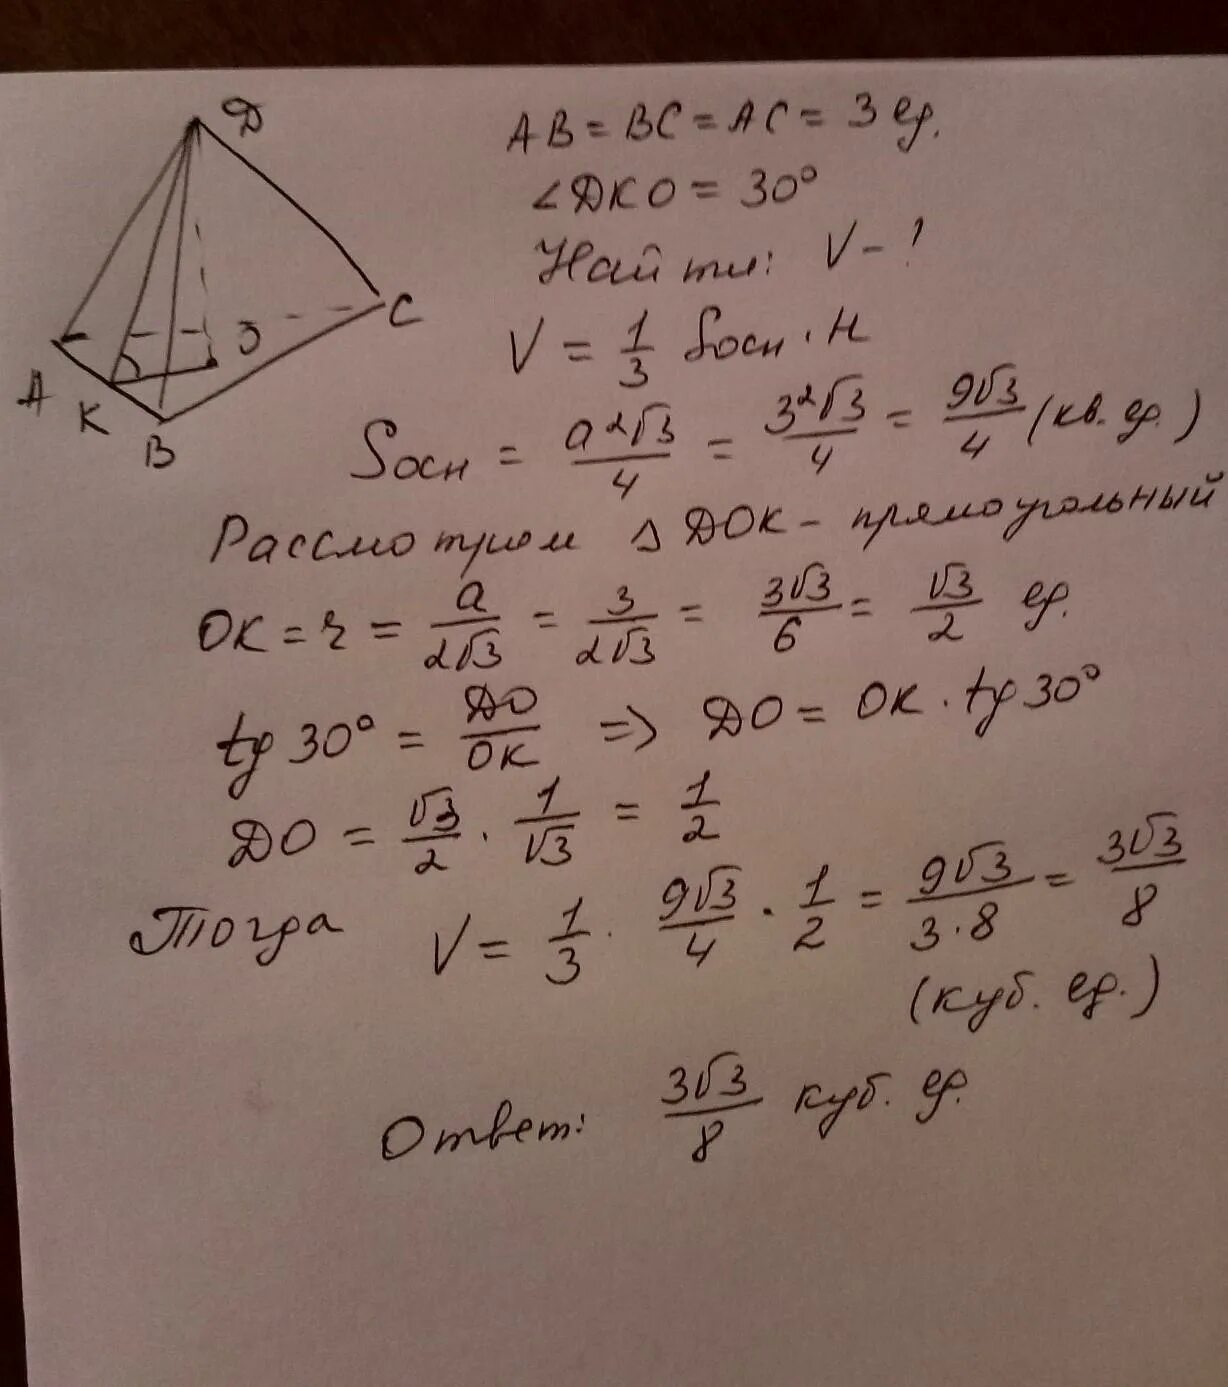 Д
А
К
В
О
С
АВ = ВС = АС = 3 ед.
∠ДКО = 30°
Найти: V - ?
V = 1/3 Sосн · H
Sосн = a²√3/4 = 3²√3/4 = 9√3/4 (кв. ед.)
Рассмотрим △ ДОК - прямоугольный
ОК = r = a/2√3 = 3/2√3 = 3√3/6 = √3/2 ед.
tg 30° = ДО/ОК => ДО = ОК · tg 30°
ДО = √3/2 · 1/√3 = 1/2
Тогда V = 1/3 · 9√3/4 · 1/2 = 9√3/3·8 = 3√3/8
(куб. ед.)
Ответ: 3√3/8 куб. ед.